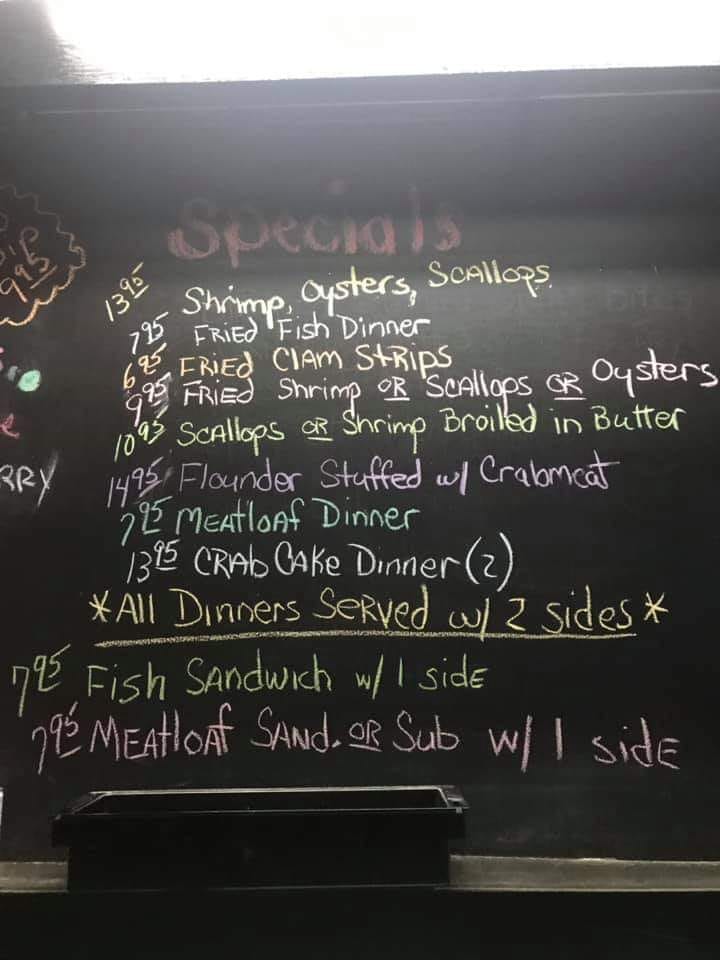 Specials
13 95 Shrimp, Oysters, Scallops
7 95 FRiEd Fish Dinner
6 95 FRiEd Clam Strips
9 95 FRiEd Shrimp OR Scallops OR Oysters
10 95 Scallops OR Shrimp Broiled in Butter
14 95 Flounder Stuffed w/ Crabmeat
7 95 MEAtloaf Dinner
13 95 CRAb CAke Dinner (2)
*All Dinners SeRved w/ 2 sides*
7 95 Fish SANdwich w/ 1 sidE
7 95 MEAtloaf SANd. OR Sub w/ 1 sidE
9 95
RRY